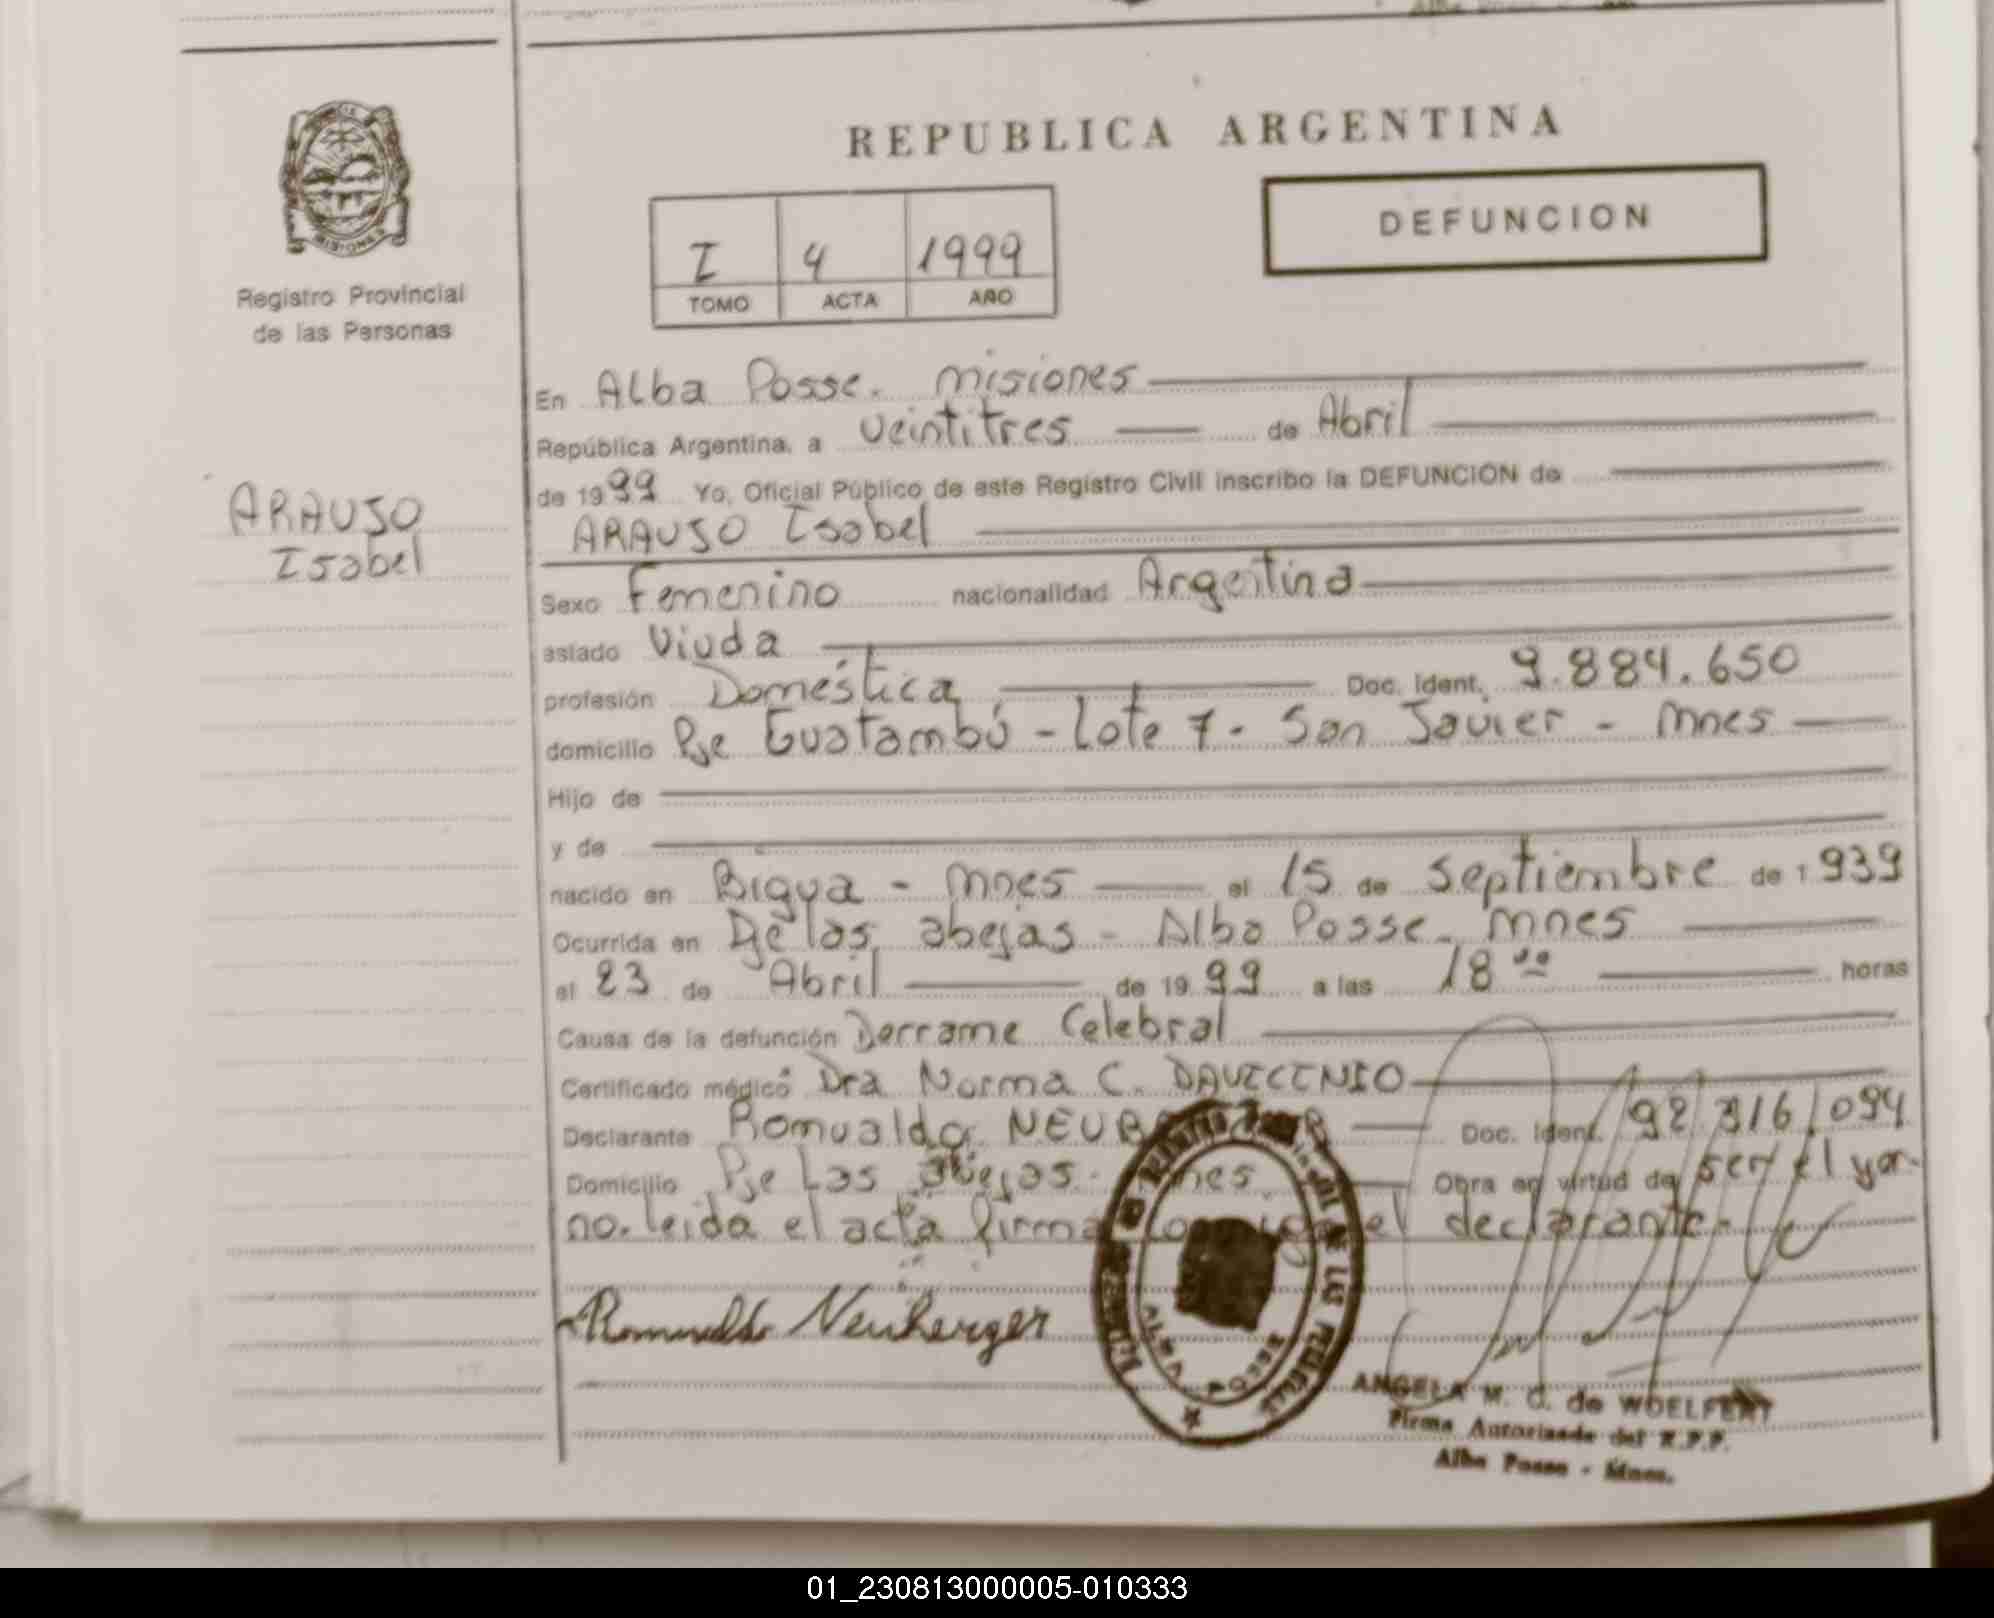 REPUBLICA ARGENTINA
DEFUNCION
MISIONES
Registro Provincial
de las Personas
I 4 1999
TOMO ACTA AÑO
ARAUJO
Isabel
En Alba Posse. Misiones
República Argentina, a veintitres de Abril
de 1999 Yo, Oficial Público de este Registro Civil inscribo la DEFUNCION de
ARAUJO Isabel
Sexo Femenino nacionalidad Argentina
estado Viuda
profesión Doméstica Doc. Ident. 9.884.650
domicilio Pje Guatambú - Lote 7 - San Javier - Mnes
Hijo de
y de
nacido en Bigua - Mnes el 15 de Septiembre de 1939
Ocurrida en Pje las abejas - Alba Posse - Mnes
el 23 de Abril de 1999 a las 18 00 horas
Causa de la defunción Derrame Celebral
Certificado médico Dra Norma C.
Declarante Romualdo Doc. Ident. 92.316.094
Domicilio Pje Las abejas - Obra en virtud de ser el yer-
no. leida el acta firma el declarante.
Romualdo Neuberger
ANGELA M. G. de WOELFERT
Firma Autorizada del R.P.P.
Alba Posse - Mnes.
01_230813000005-010333